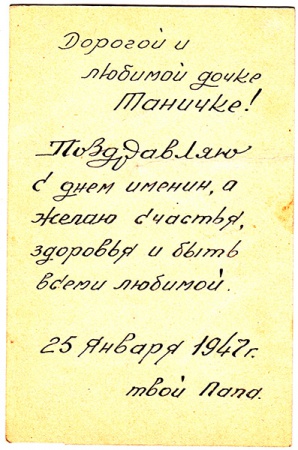 Дорогой и
любимой дочке
Таничке!
Поздравляю
с днем именин, а
желаю счастья,
здоровья и быть
всеми любимой.
25 января 1947г.
твой Папа.